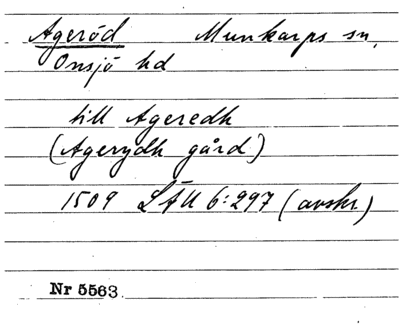 Ageröd Munkarps sn,
Onsjö hd
till Ageredh
(Agerydh gård)
1509 LÄU 6:297 (avskr.)
Nr 5563